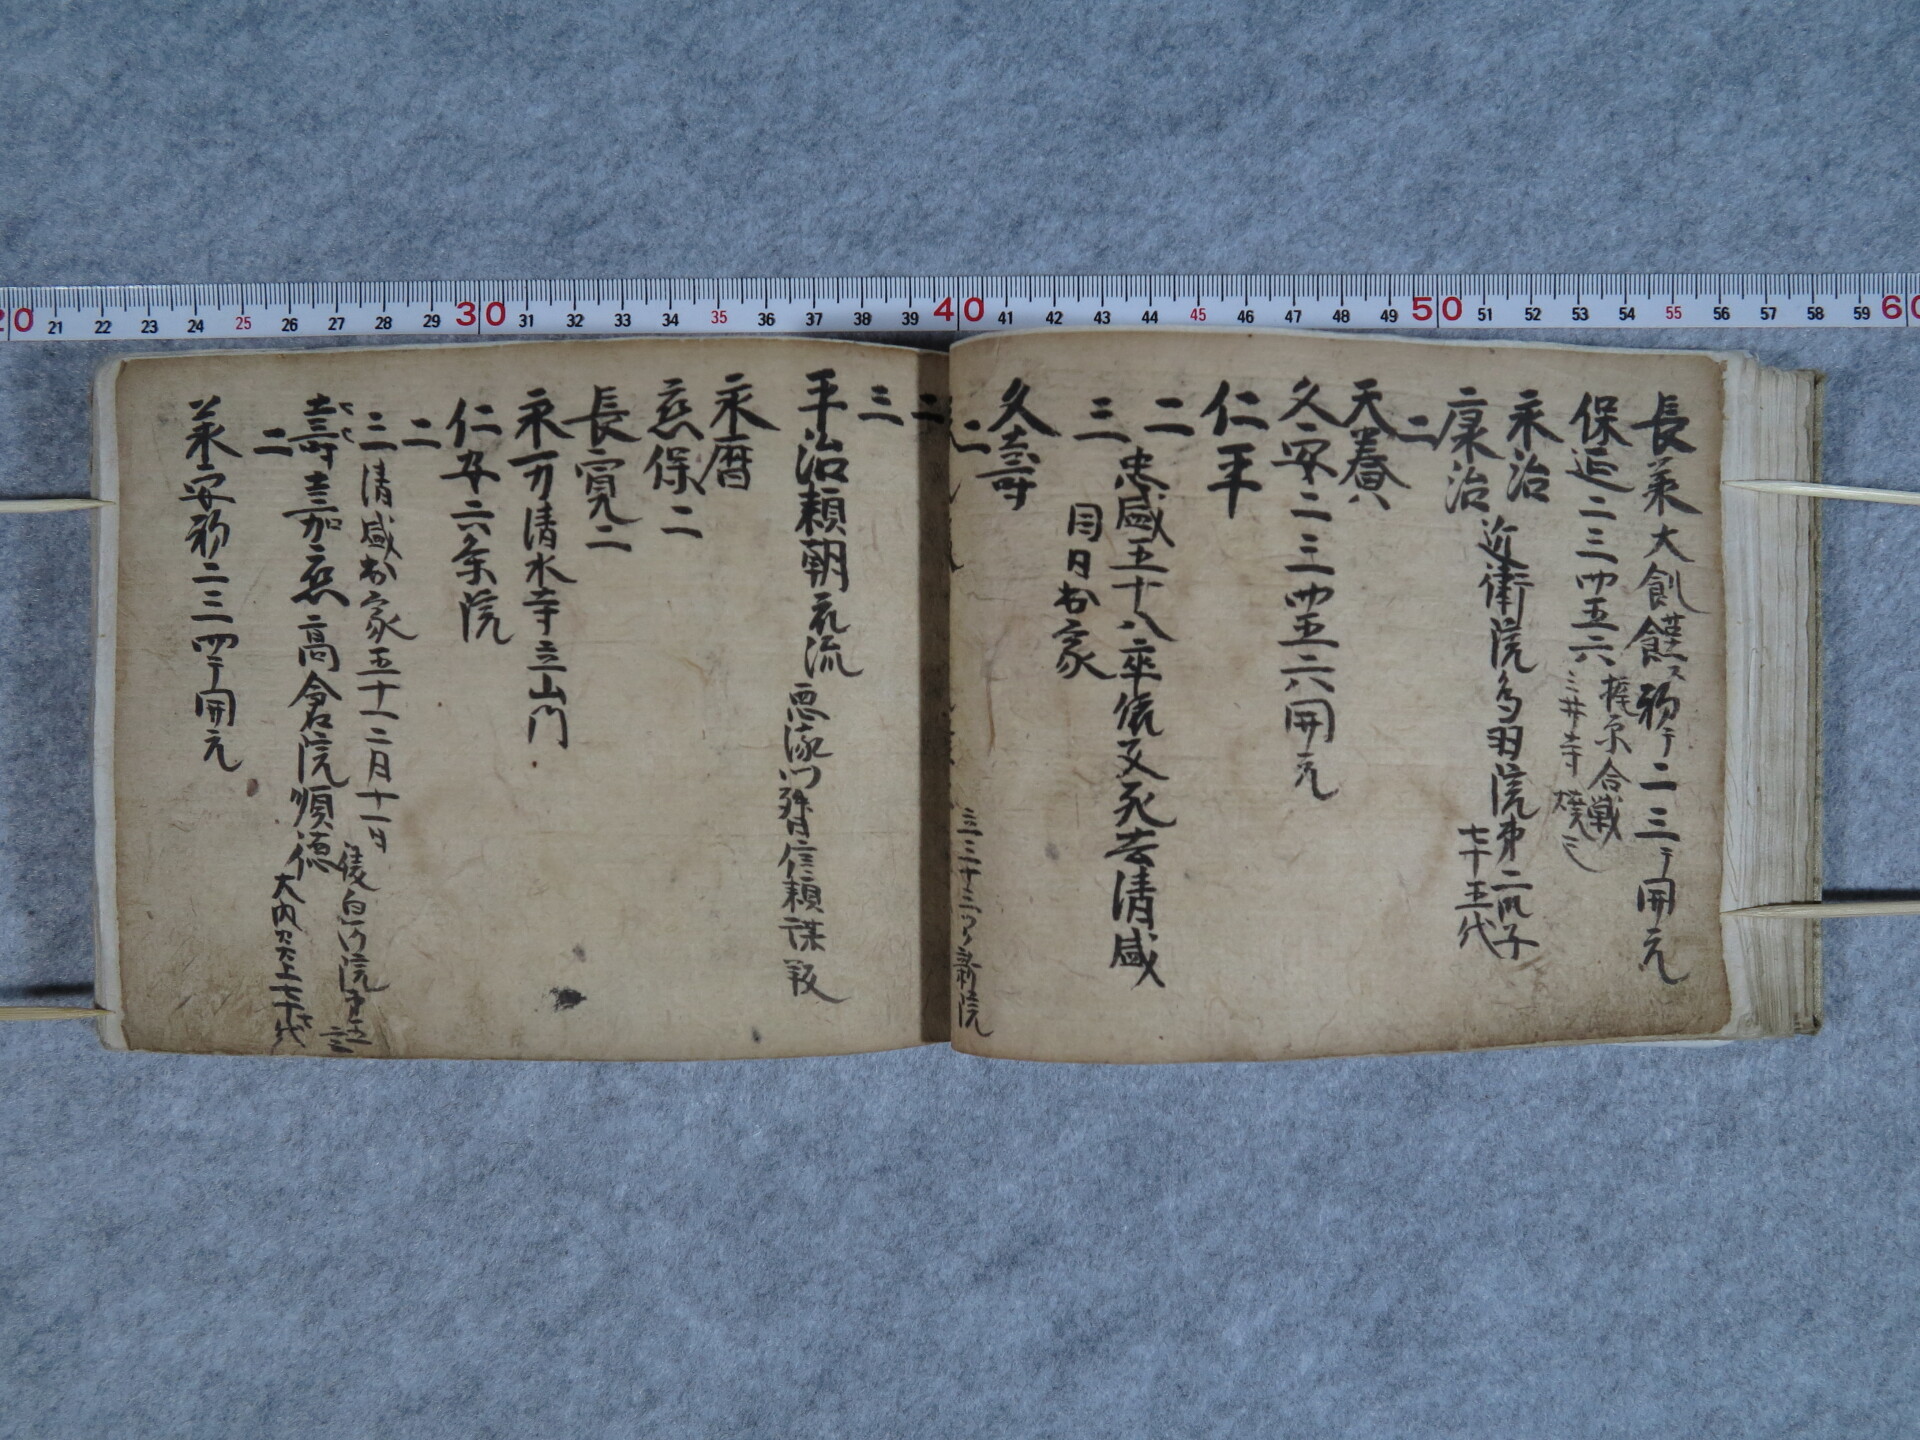 長承大飢饉ス初テ二三テ開元
保延二三四五六
梶原合戦
三井寺焼
永治
近衛院鳥羽院第二御子
七十五代
康治
二
天養
久安二三四五六開元
仁平
二
忠盛五十八卒
死去清盛
三
同日出家
久寿
二
三三十三
新院
二
三
平治頼朝流
信頼謀叛
永暦
応保二
長寛二
永万清水寺立山門
仁安六条院
二
三清盛出家五十一二月十一日
後白河院
嘉応高倉院順徳
二
大内
承安初二三四テ開元
20 21 22 23 24 25 26 27 28 29 30 31 32 33 34 35 36 37 38 39 40 41 42 43 44 45 46 47 48 49 50 51 52 53 54 55 56 57 58 59 60